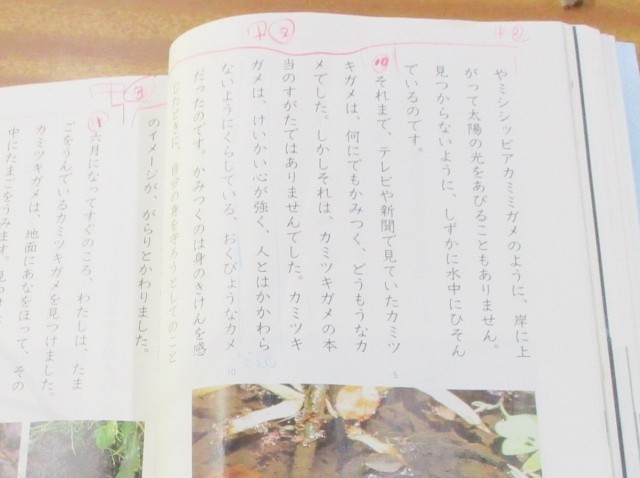 やミシシッピアカミミガメのように、岸に上
がって太陽の光をあびることもありません。
見つからないように、しずかに水中にひそん
でいるのです。
⑩それまで、テレビや新聞で見ていたカミツ
キガメは、何にでもかみつく、どうもうなカ
メでした。しかしそれは、カミツキガメの本
当のすがたではありませんでした。カミツキ
ガメは、けいかい心が強く、人とはかかわら
ないようにくらしている、おくびょうなカメ
だったのです。かみつくのは身のきけんを感
じたときに、自分の身を守ろうとしてのこと
のイメージが、がらりとかわりました。
⑪六月になってすぐのころ、わたしは、たま
ごをうんでいるカミツキガメを見つけました。
カミツキガメは、地面にあなをほって、その
中にたまごをうみます。
5
10
中②
中③